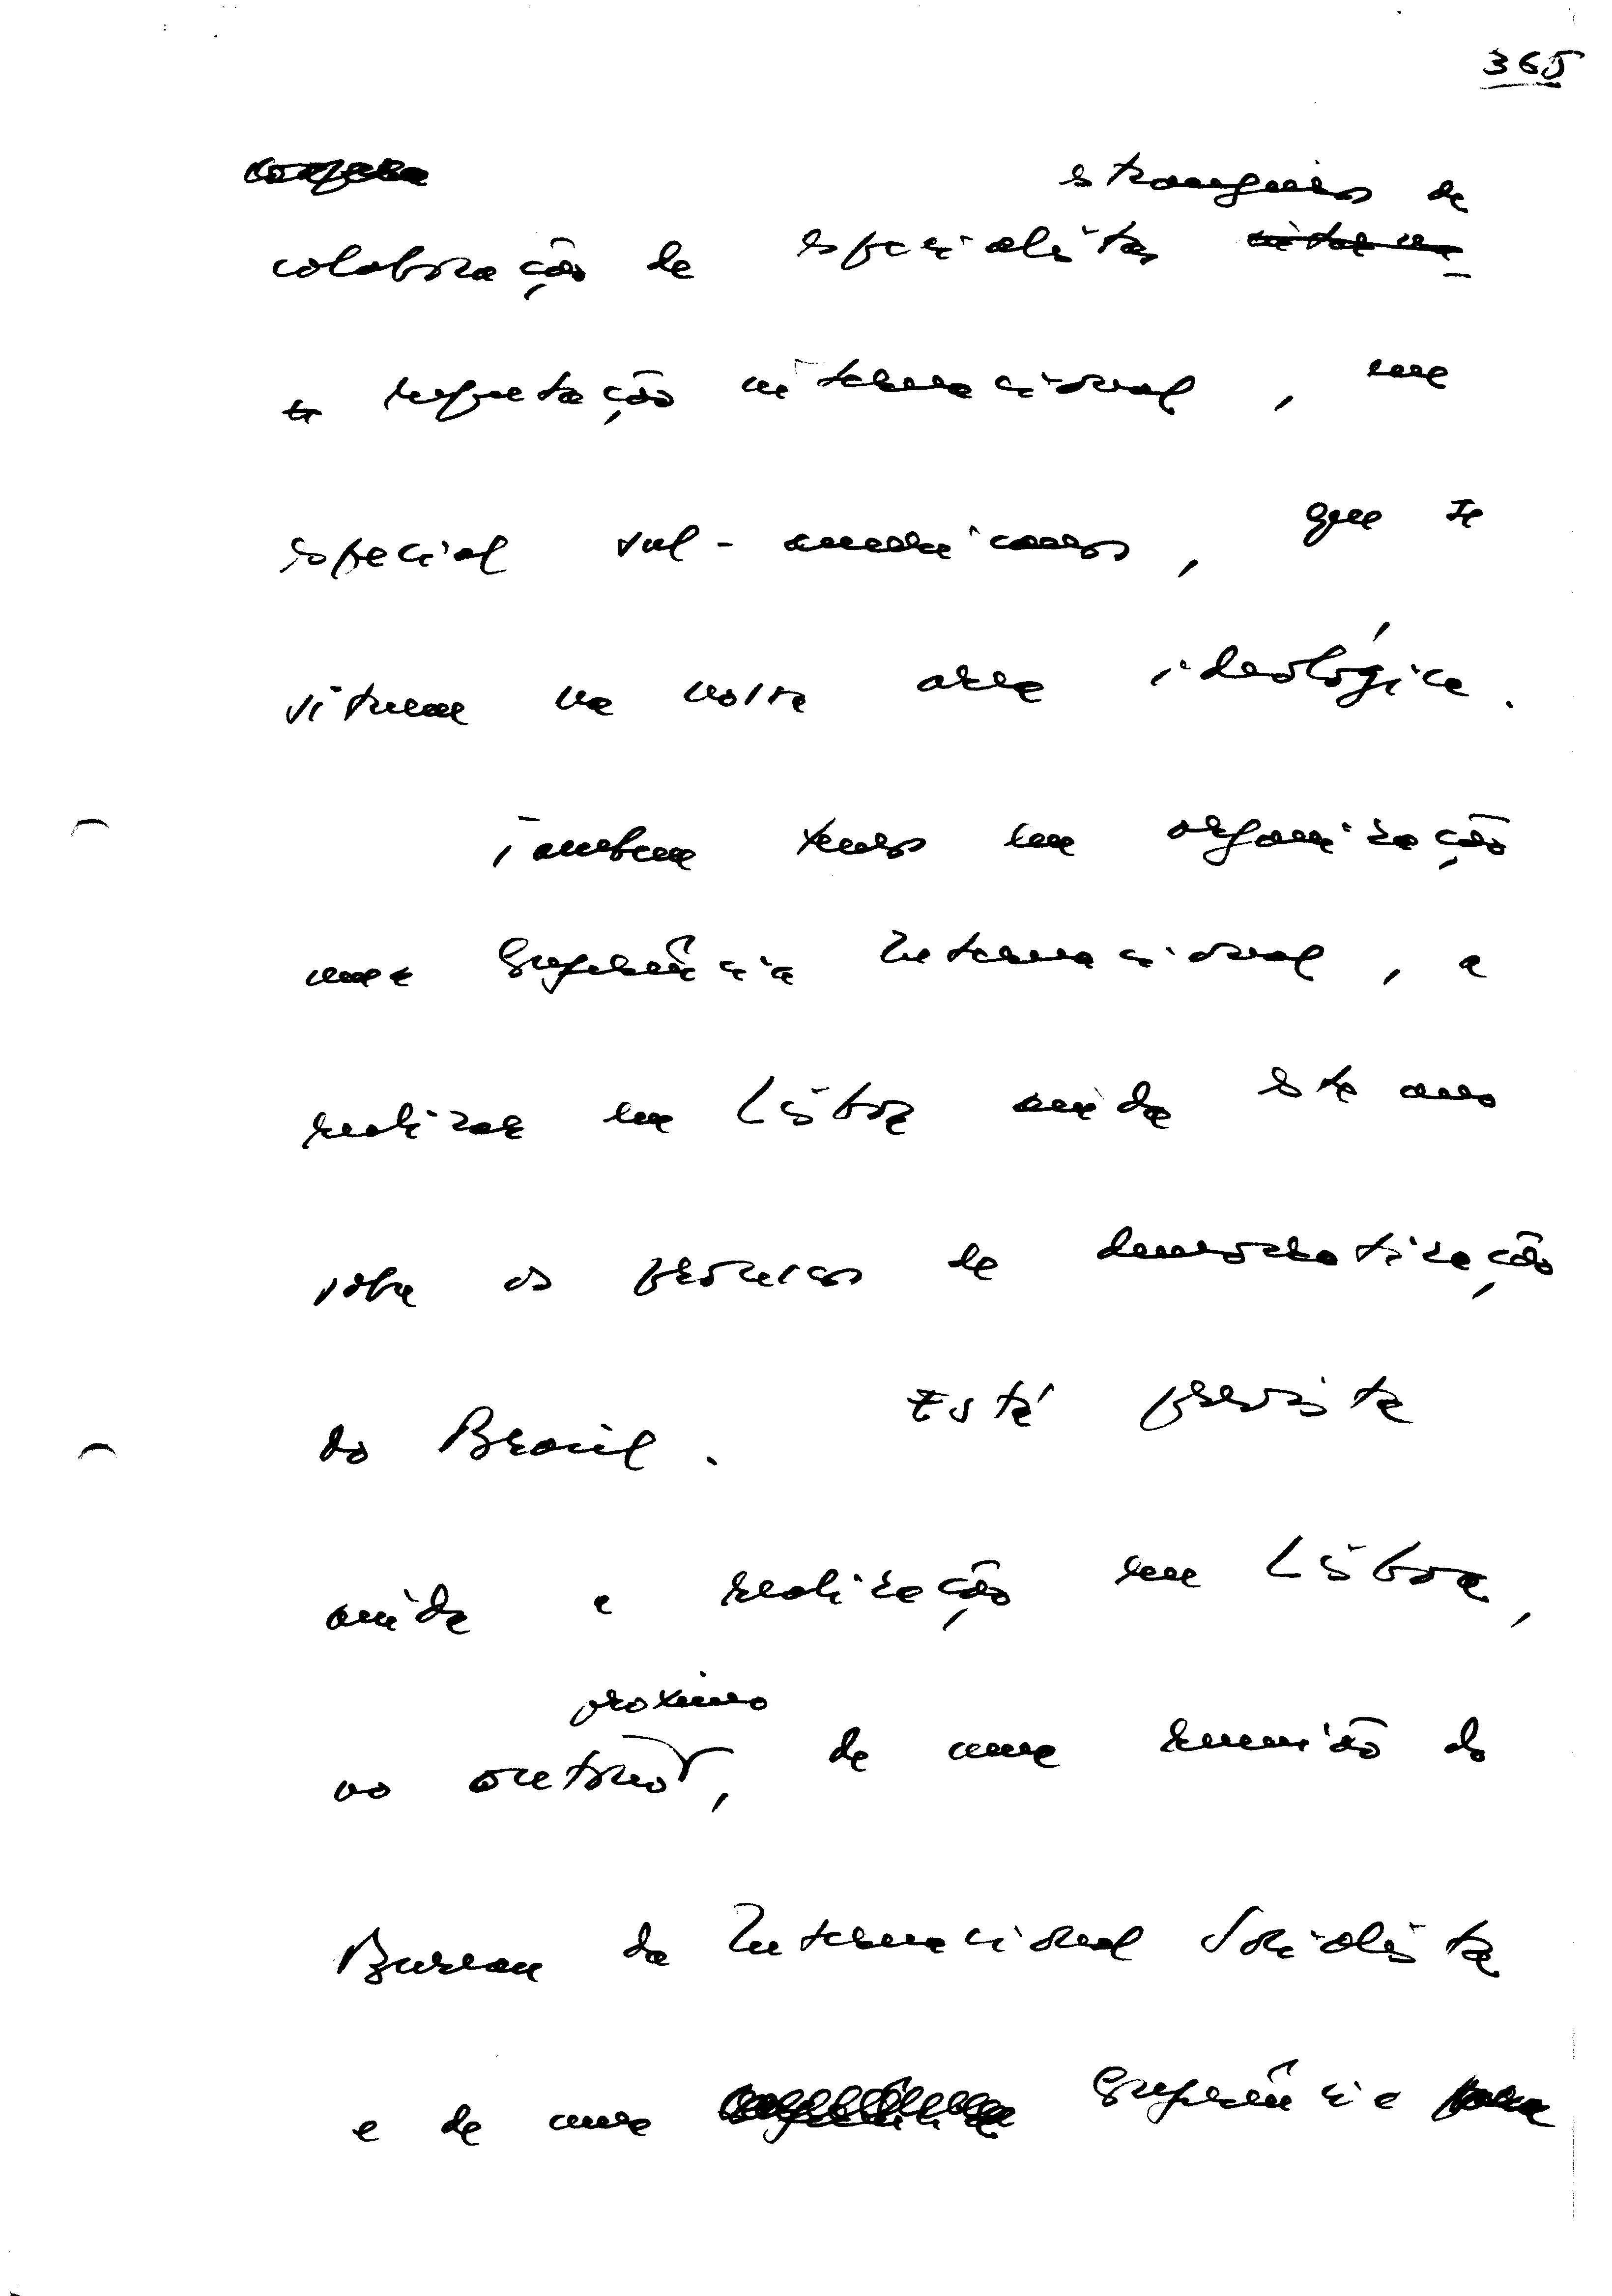 365
estrangeiros de
colaboração de especialistas
reputação internacional, em
especial sul-americanos, que se
situem na nossa area ideológica.
Tambem temos em organização
uma Conferência Internacional, a
realizar em Lisboa ainda este ano
sobre os processos de democratização
do Brasil. Está prevista
ainda a realização em Lisboa,
proximo
no outono, de uma reunião do
Bureau da Internacional Socialista
e de uma Conferência para